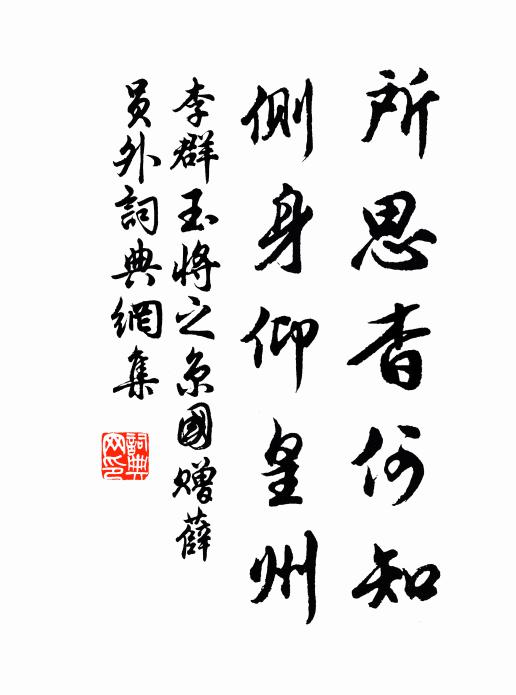 所思杳何知
側身仰皇州
李群玉將之京國贈薛
員外詞典網集
詞典網印